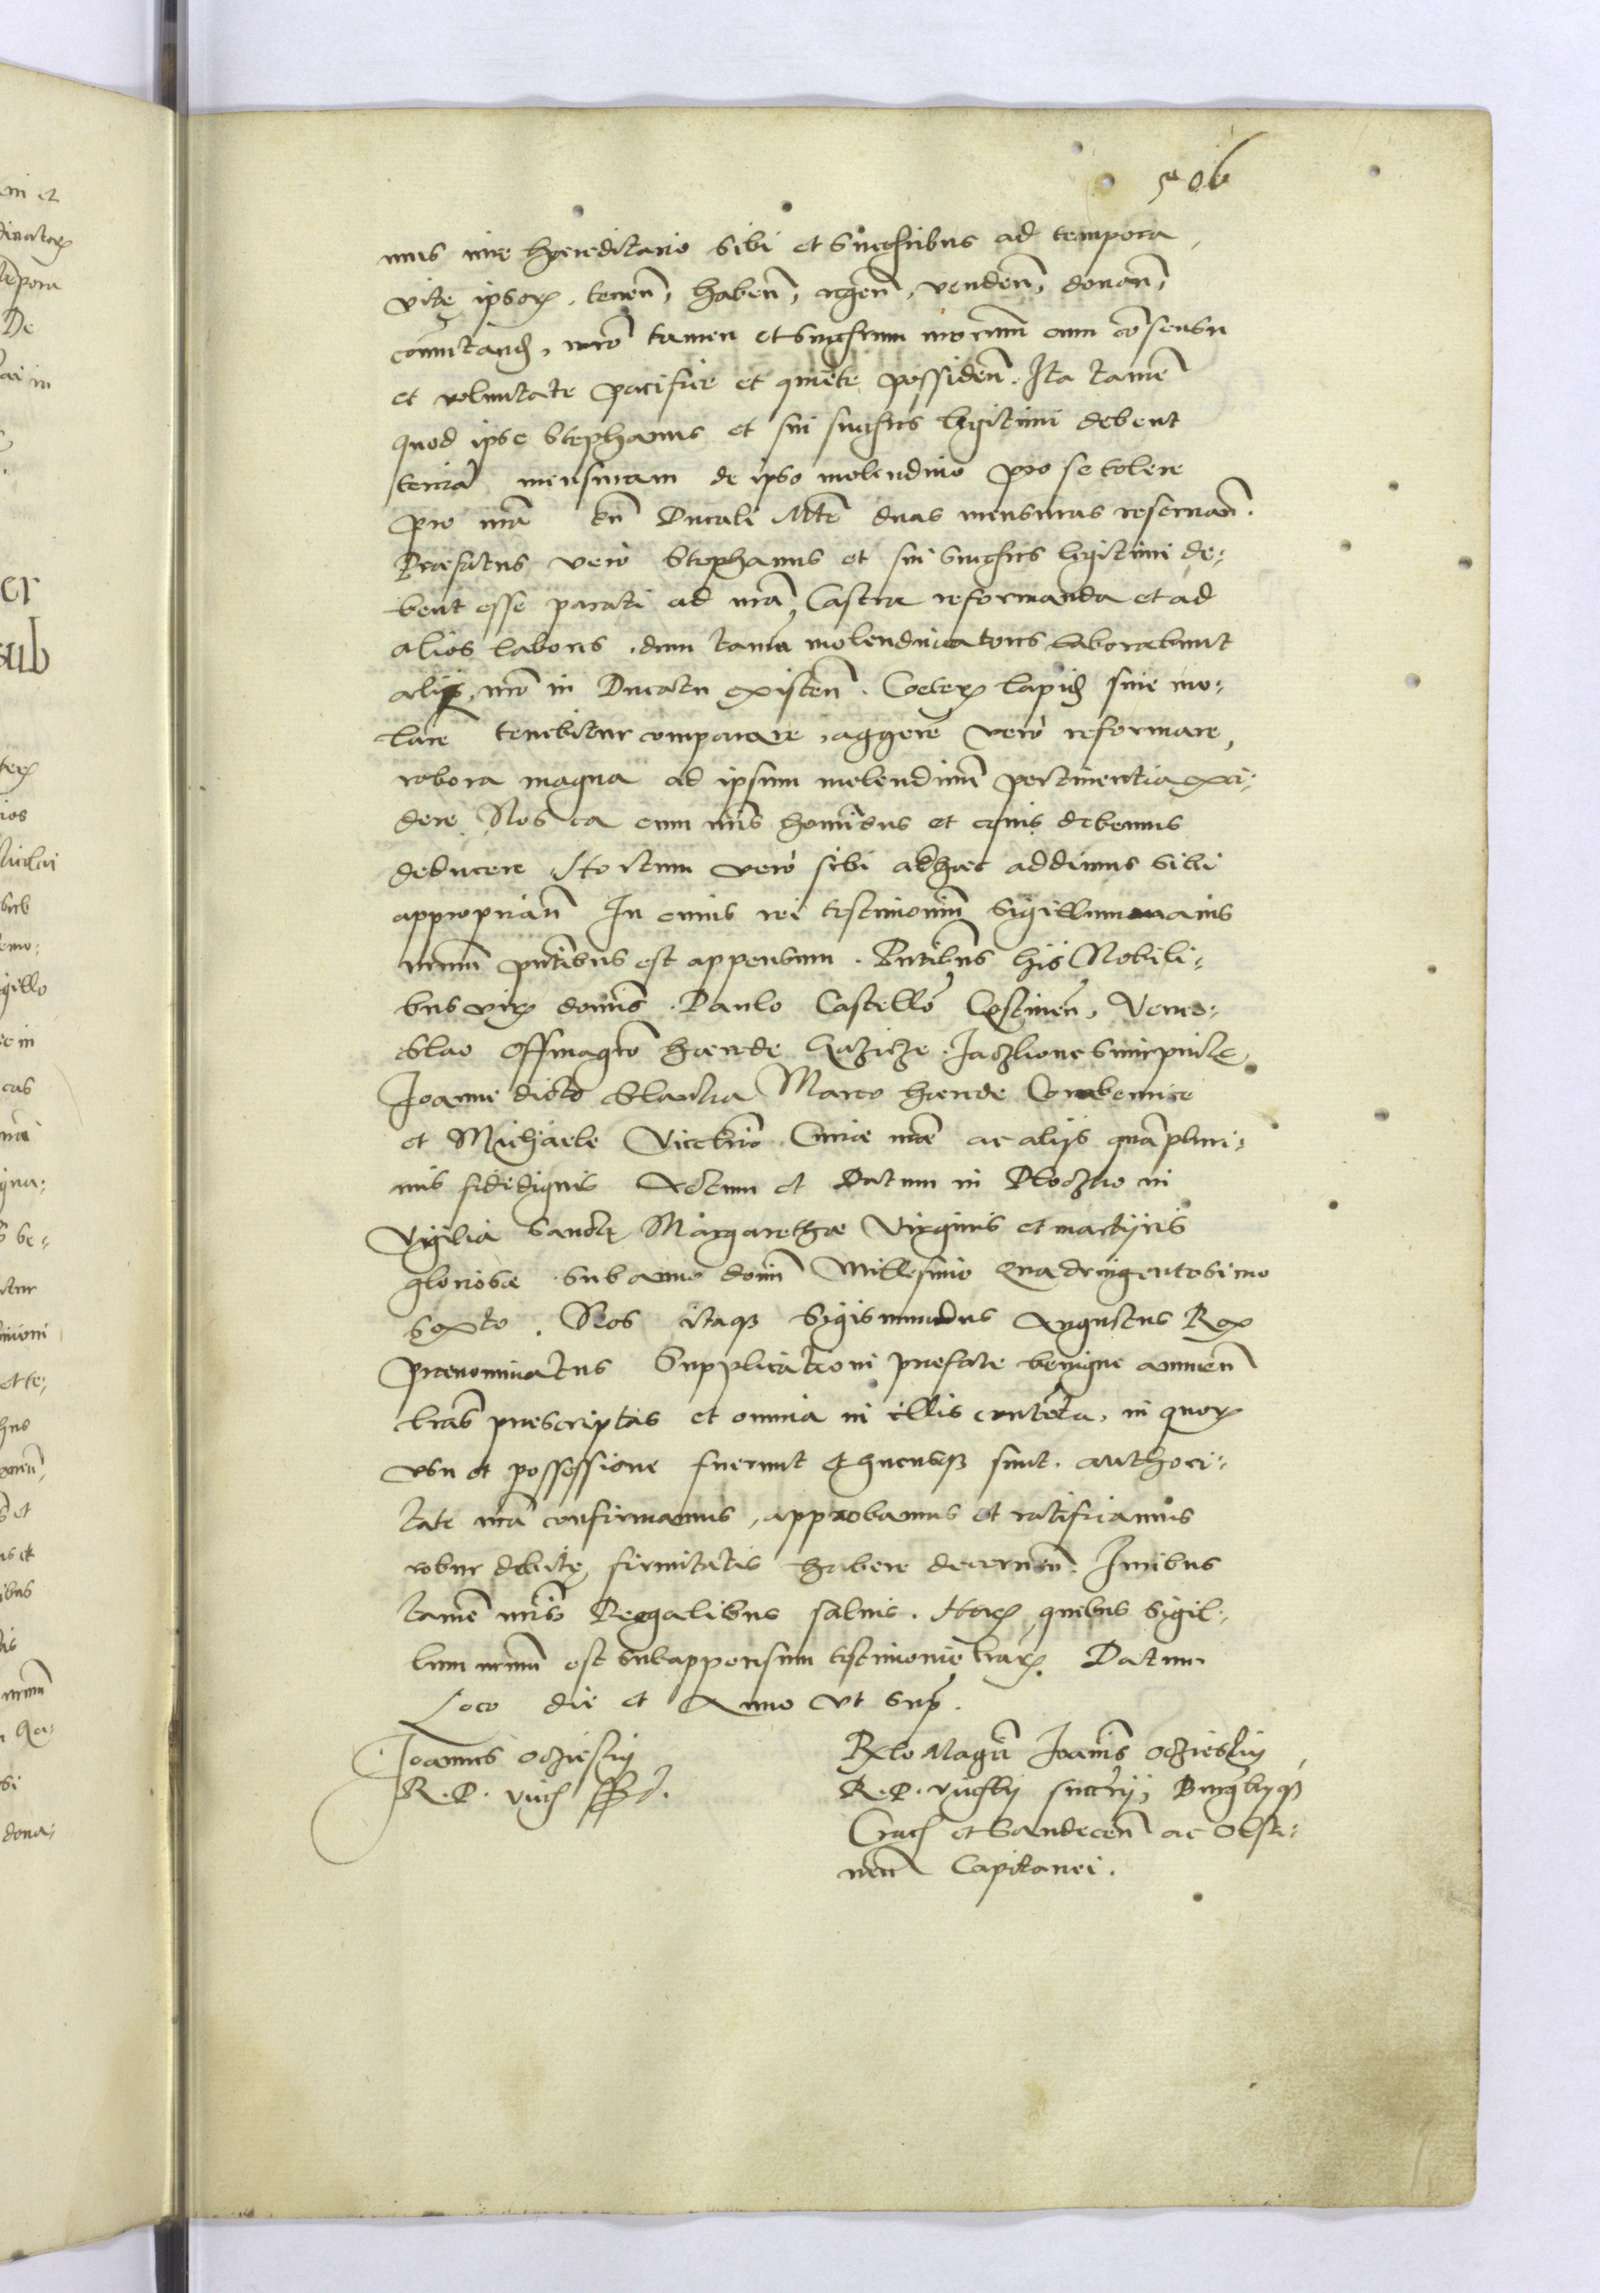 506
mus iure haereditario sibi et succesribus ad tempora
vitę ipsorꝝ, tenen̄, haben̄, regen̄, venden̄, donan̄,
com̄utand, nr̄o tamen et succesrum nrorum cum cōsensu
et voluntate pacifice et quiete possiden̄. Ita tamē
quod ipse Stephanus et sui succesrs legitimi debent
terciā mensuram de ipso molendino pro se tolere
pro nrā vn̄ Ducali Mtē duas mensuras reseruan̄.
Praefatus vero Stephanus et sui succesrs legitimi de-
bent esse parati ad nrā Castra reformanda et ad
alios labores, dum tamen molendinatores laborabunt
alij, nrō in Ducatu existen̄. Coeterꝝ lapid siue mo-
lare tenebitur comparare, aggerē vero reformare,
robora magna ad ipsum molendinū pertinentia exci-
dere Nos ea cum nrīs hominībus et equis debemus
deducere Hortum vero sibi adhaec addimus sibi
approprian̄ In cuius rei testimoniū Sigillum maius
nrum pn̄tibus est appensum. Pn̄tibus his Nobili-
bus virꝝ domīs. Paulo Castellō Costinen̄, Vences-
slao haerede Jaczkone
Joanne dicto Slanka Marco haerede
et Michaele Curiae nrae ac alijs quā pluri-
mis fidedignis Actum et Datum in Ploczko in
Vigilia Sanctę Margarethae Virginis et martijris
gloriosae sub anno domī Millesimo Quadringentesimo
Sexto. Nos itaqꝫ Sigismundus Augustus Rex
praenominatus Supplicationi praefate benigne annuen̄
lrās praescriptas et omnia in illis contēta, in quorꝝ
vsu et possessione fuerunt et hucusqꝫ sunt. authori-
tate nrā confirmamus, approbamus et ratificamus
robur debitę firmitatis habere decernen̄. Iuribus
tamē nrīs Regalibus saluis. Harꝝ quibus Sigil-
lum nrum est subappensum testimonio lrarꝝ. Datum
Loco die et Anno vt sup̄.
Joannes Oczieskij
R. P. vicę sst.
Rxlo Magci Joannis Oczieskij
R. P. vicęcll succrij, Burgbijqꝫ
Crac et Sandecen̄ ac Olsti-
nen̄ Capitanei.